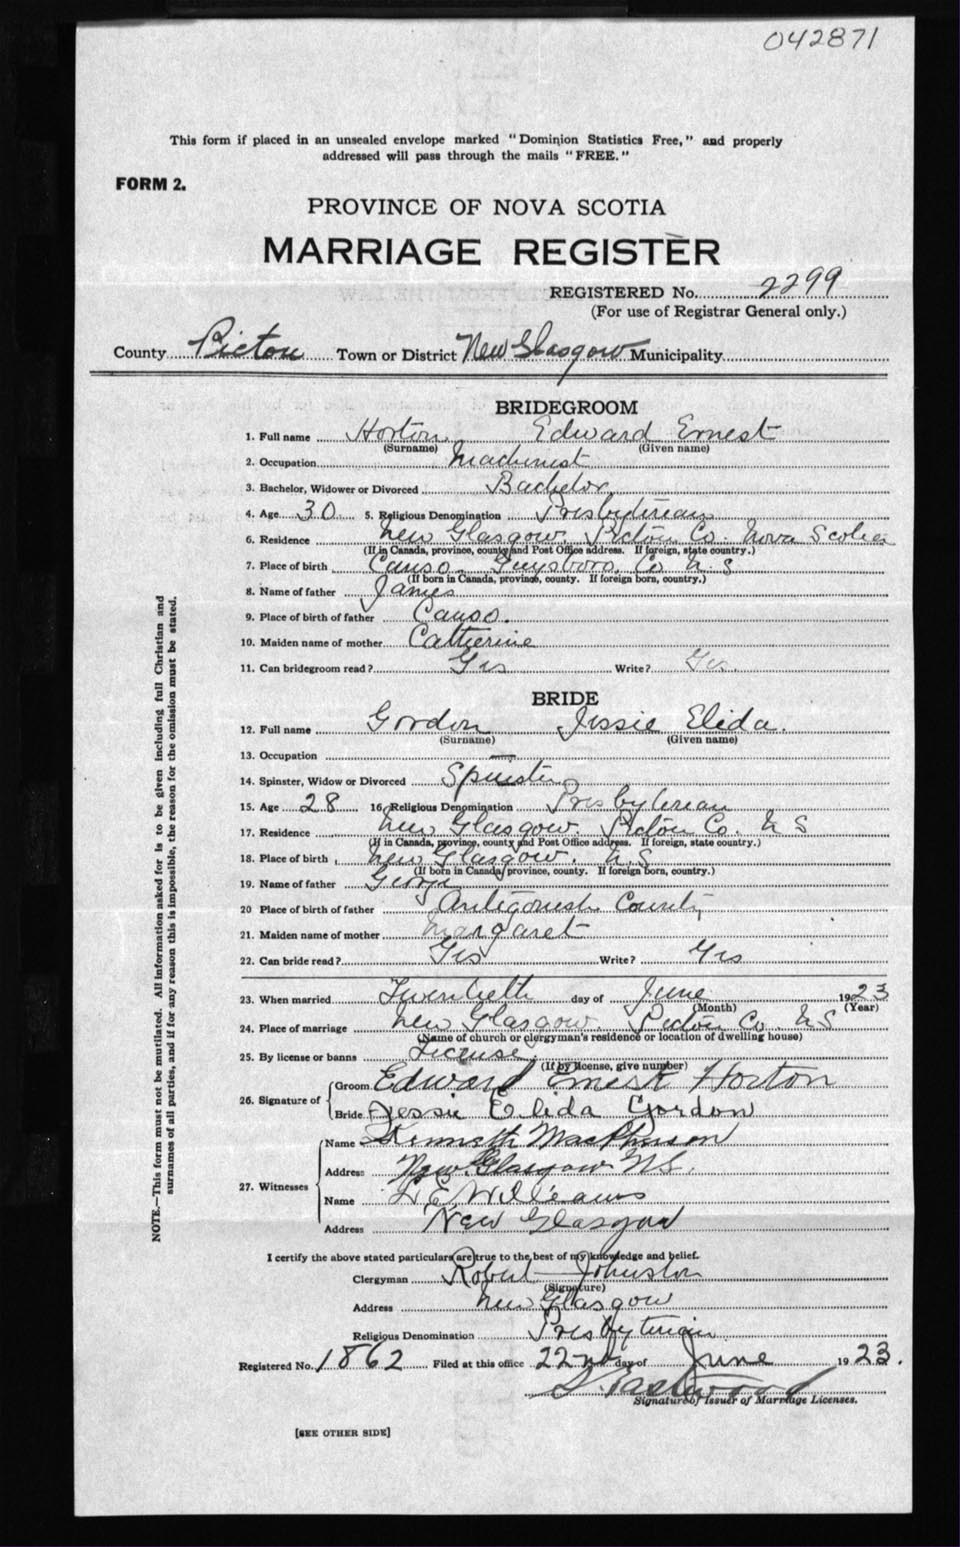 042871
This form if placed in an unsealed envelope marked "Dominion Statistics Free," and properly
addressed will pass through the mails "FREE."
FORM 2.
PROVINCE OF NOVA SCOTIA
MARRIAGE REGISTER
REGISTERED No. 2299
(For use of Registrar General only.)
County Pictou Town or District New Glasgow Municipality
BRIDEGROOM
1. Full name Horton Edward Ernest
(Surname) (Given name)
2. Occupation Machinist
3. Bachelor, Widower or Divorced Bachelor
4. Age 30 5. Religious Denomination Presbyterian
6. Residence New Glasgow. Pictou Co. Nova Scotia
(If in Canada, province, county and Post Office address. If foreign, state country.)
7. Place of birth Canso Guysboro Co N.S
(If born in Canada, province, county. If foreign born, country.)
8. Name of father James
9. Place of birth of father Canso.
10. Maiden name of mother Catherine
11. Can bridegroom read? Yes Write? Yes
BRIDE
12. Full name Gordon Jessie Elida.
(Surname) (Given name)
13. Occupation —
14. Spinster, Widow or Divorced Spinster
15. Age 28 16. Religious Denomination Presbyterian
17. Residence New Glasgow. Pictou Co. N S
(If in Canada, province, county and Post Office address. If foreign, state country.)
18. Place of birth New Glasgow. N.S
(If born in Canada province, county. If foreign born, country.)
19. Name of father George
20 Place of birth of father Antigonish County
21. Maiden name of mother Margaret
22. Can bride read? Yes Write? Yes
23. When married Twentieth day of June 1923
(Month) (Year)
24. Place of marriage New Glasgow. Pictou Co. N S
(Name of church or clergyman's residence or location of dwelling house)
25. By license or banns License
(If by license, give number)
26. Signature of Groom Edward Ernest Horton
Bride Jessie Elida Gordon
27. Witnesses Name Kenneth MacPherson
Address New Glasgow N.S.
Name Williams
Address New Glasgow
I certify the above stated particulars are true to the best of my knowledge and belief.
Clergyman Robert Johnston
(Signature)
Address New Glasgow
Religious Denomination Presbyterian
Registered No. 1862 Filed at this office 22nd day of June 1923.
Signature of Issuer of Marriage Licenses.
[SEE OTHER SIDE]
NOTE.—This form must not be mutilated. All information asked for is to be given including full Christian and
surnames of all parties, and if for any reason this is impossible, the reason for the omission must be stated.